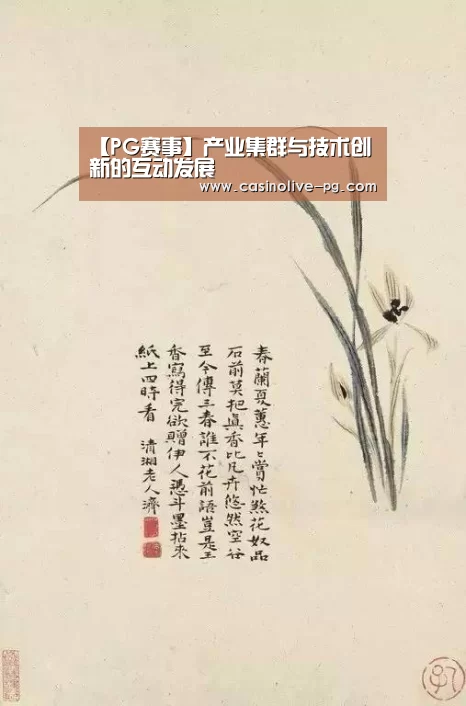 【PG赛事】产业集群与技术创
新的互动发展
www.casinolive-pg.com
春蘭夏蕙年〻賞忙煞花奴品
石前莫把眞香比凡卉悠然空谷
至今傳三春誰不花前語豈是王
香寫得完欲贈伊人憑斗墨拈來
紙上四時看 清湘老人濟